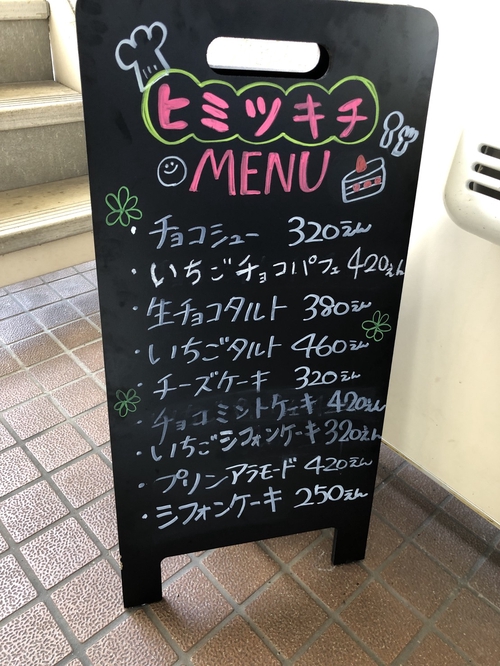 ヒミツキチ
MENU
・チョコシュー 320えん
・いちごチョコパフェ 420えん
・生チョコタルト 380えん
・いちごタルト 460えん
・チーズケーキ 320えん
・チョコミントケーキ 420えん
・いちごシフォンケーキ 320えん
・プリンアラモード 420えん
・シフォンケーキ 250えん